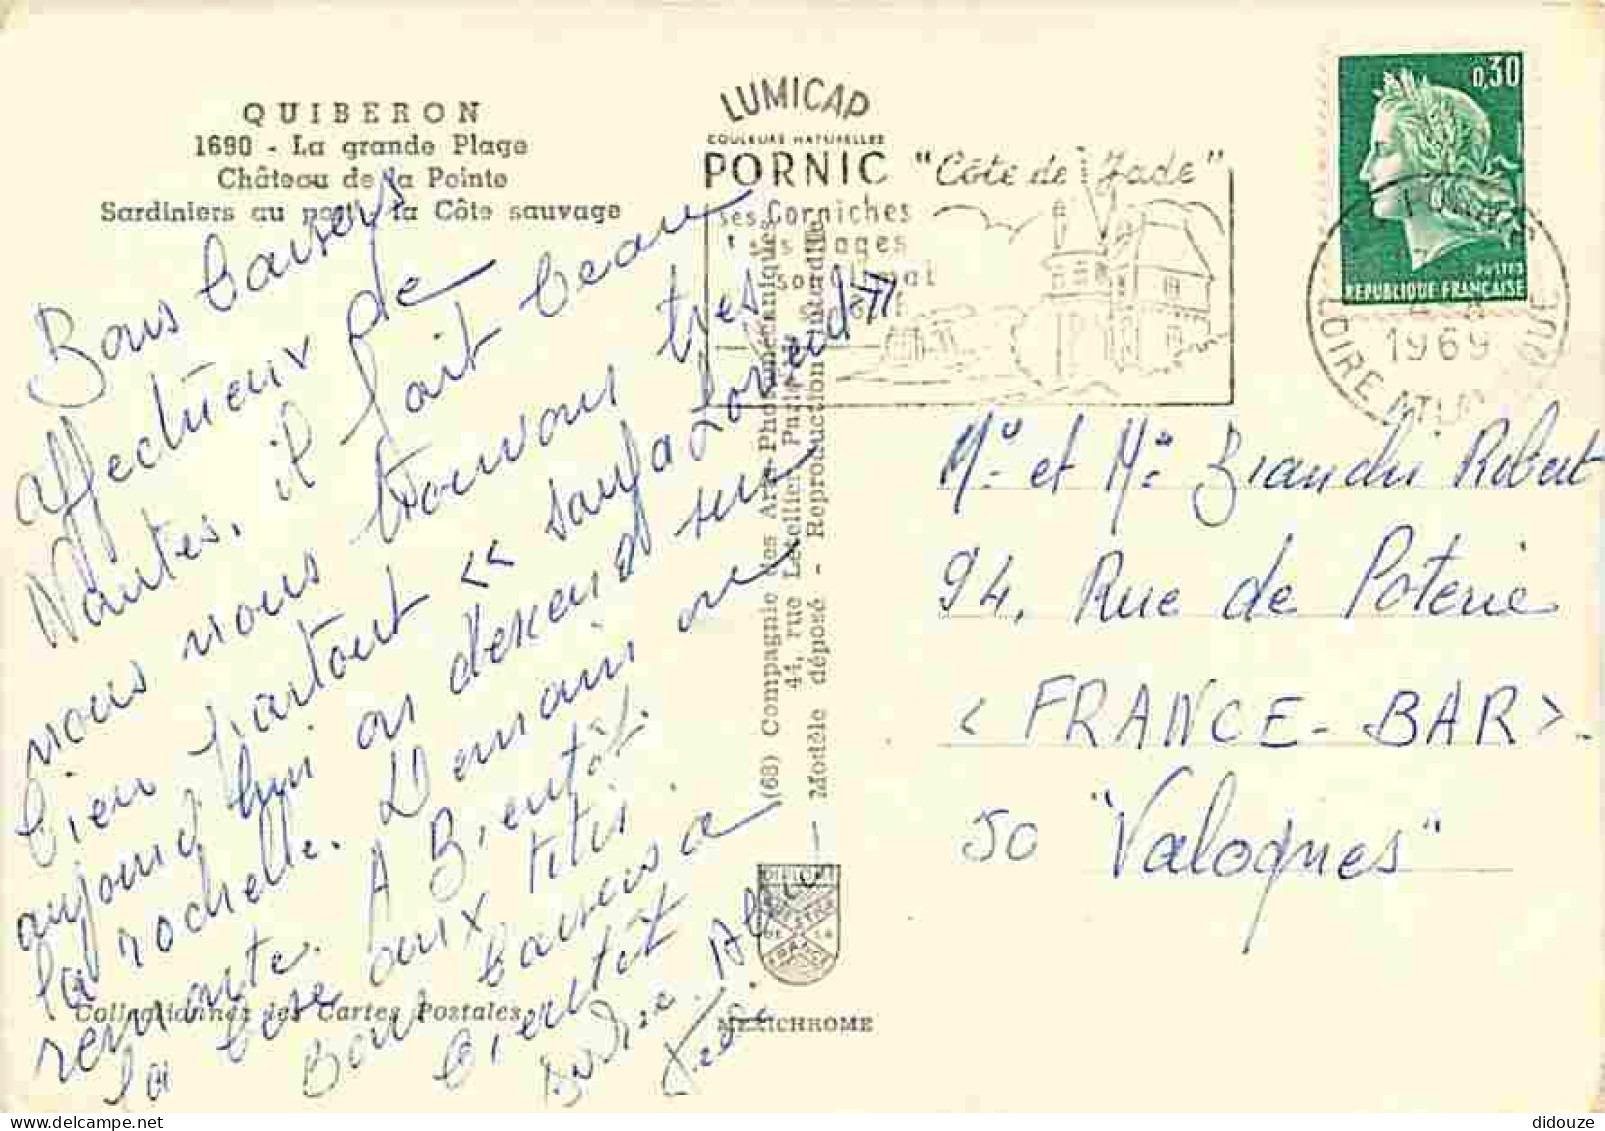 QUIBERON
1690 - La grande Plage
Château de la Pointe
Sardiniers au port, la Côte sauvage
Bons baisers
affectueux de
Nantes. il fait beau
nous nous trouvons très
bien partout « sauf a Lourdes »
aujourd'hui on descend sur
la rochelle. Demain on
remonte. A Bientôt.
la bise aux titis.
Bons baisers a
bientôt
Collectionnez les Cartes Postales
LUMICAP
COULEURS NATURELLES
PORNIC "Côte de Jade"
ses Corniches
ses Plages
(68) Compagnie des Arts Photomécaniques
44, rue Letellier Paris
Modèle déposé - Reproduction interdite
MEXICHROME
0,30
POSTES
REPUBLIQUE FRANÇAISE
1969
LOIRE ATLANTIQUE
Mr et Me Bianchi Robert
94, Rue de Poterie
< FRANCE-BAR >.
50 "Valognes"
didouze